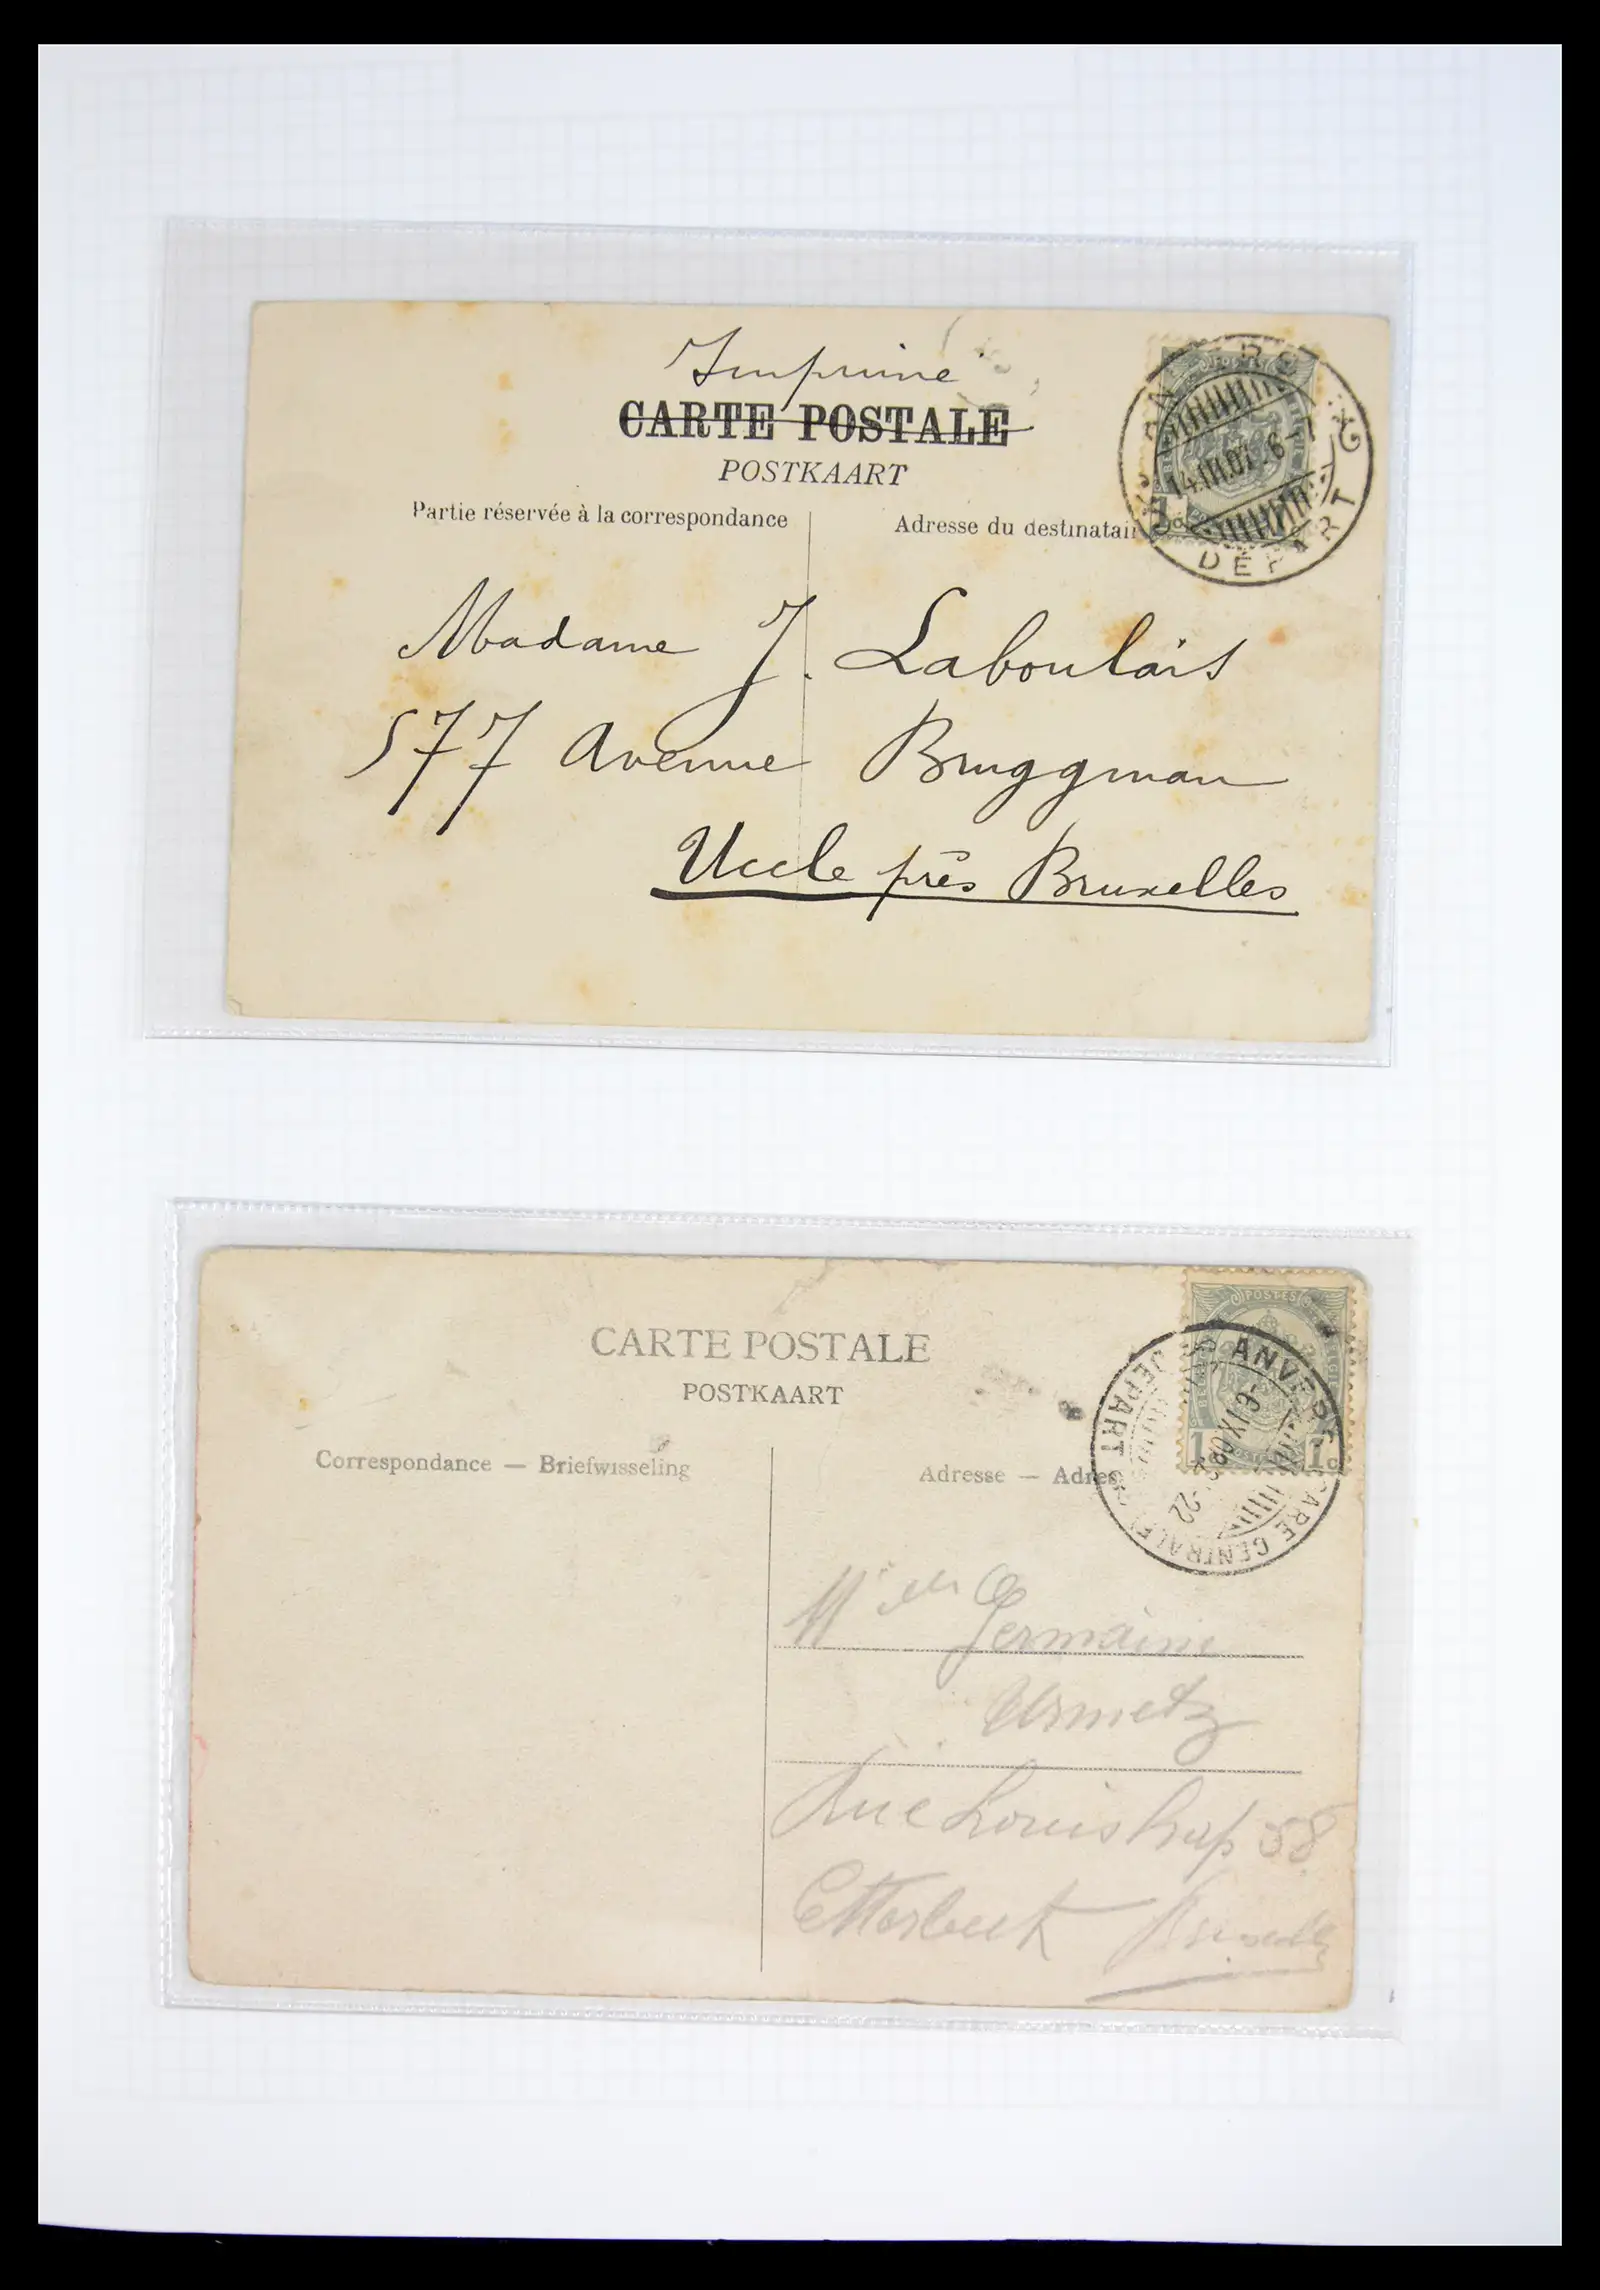 Imprimé
CARTE POSTALE
POSTKAART
Partie réservée à la correspondance
Adresse du destinatair
14.III.07. 6-
DÉPART
Madame J. Laboulais
577 Avenue Bruggman
Uccle près Bruxelles
POSTES
1 1c
CARTE POSTALE
POSTKAART
Correspondance — Briefwisseling
Adresse — Adres
ANVERS GARE CENTRALE
DEPART
-6 IX 09 -22
Germaine
Urmetz
Rue Louis Hap 58
Etterbeek Bruxelles